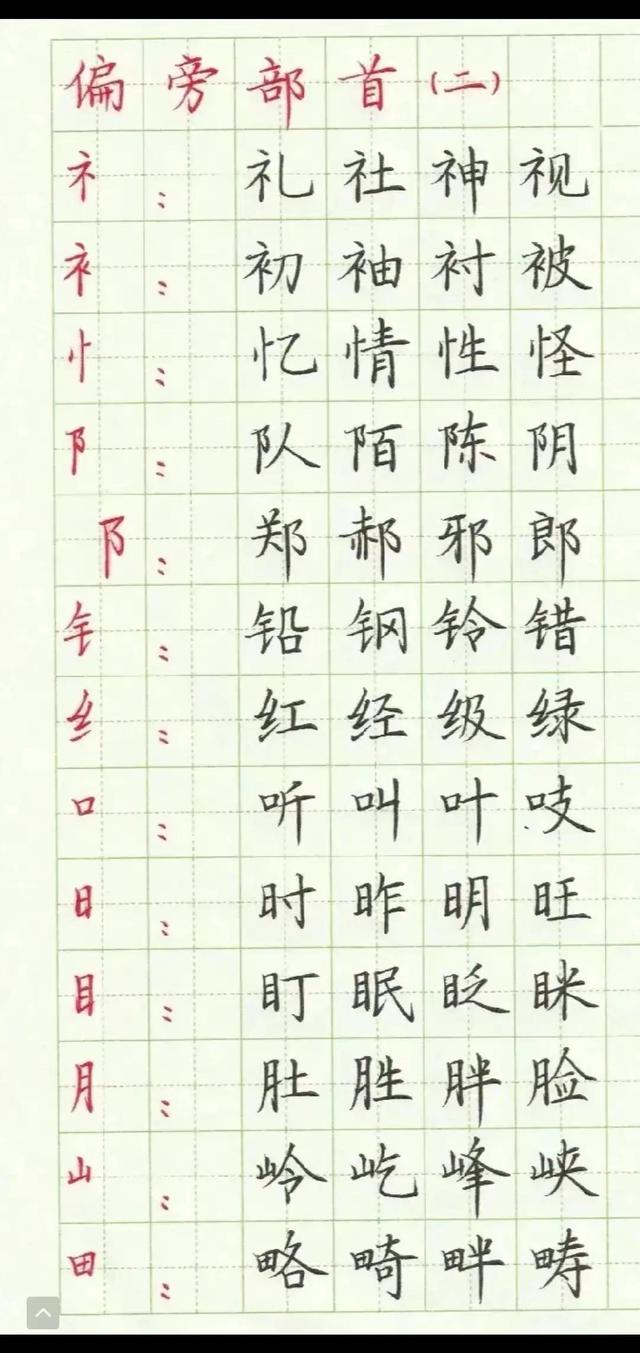 偏旁部首（二）
礻：礼社神视
衤：初袖衬被
忄：忆情性怪
阝：队陌陈阴
阝：郑郝邪郎
钅：铅钢铃错
纟：红经级绿
口：听叫叶吱
日：时昨明旺
目：盯眠眨眯
月：肚胜胖脸
山：岭屹峰峡
田：略畸畔畴